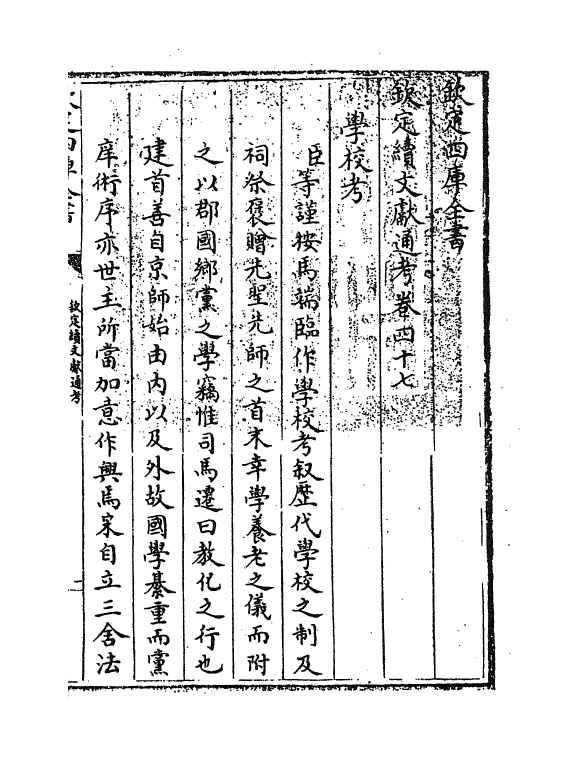 欽定四庫全書
欽定續文獻通考卷四十七
學校考
臣等謹按馬端臨作學校考叙歷代學校之制及
祠祭褒贈先聖先師之首末幸學養老之儀而附
之以郡國鄉黨之學竊惟司馬遷曰教化之行也
建首善自京師始由內以及外故國學綦重而黨
庠術序亦世主所當加意作興焉宋自立三舍法
欽定四庫全書
欽定續文獻通考
一